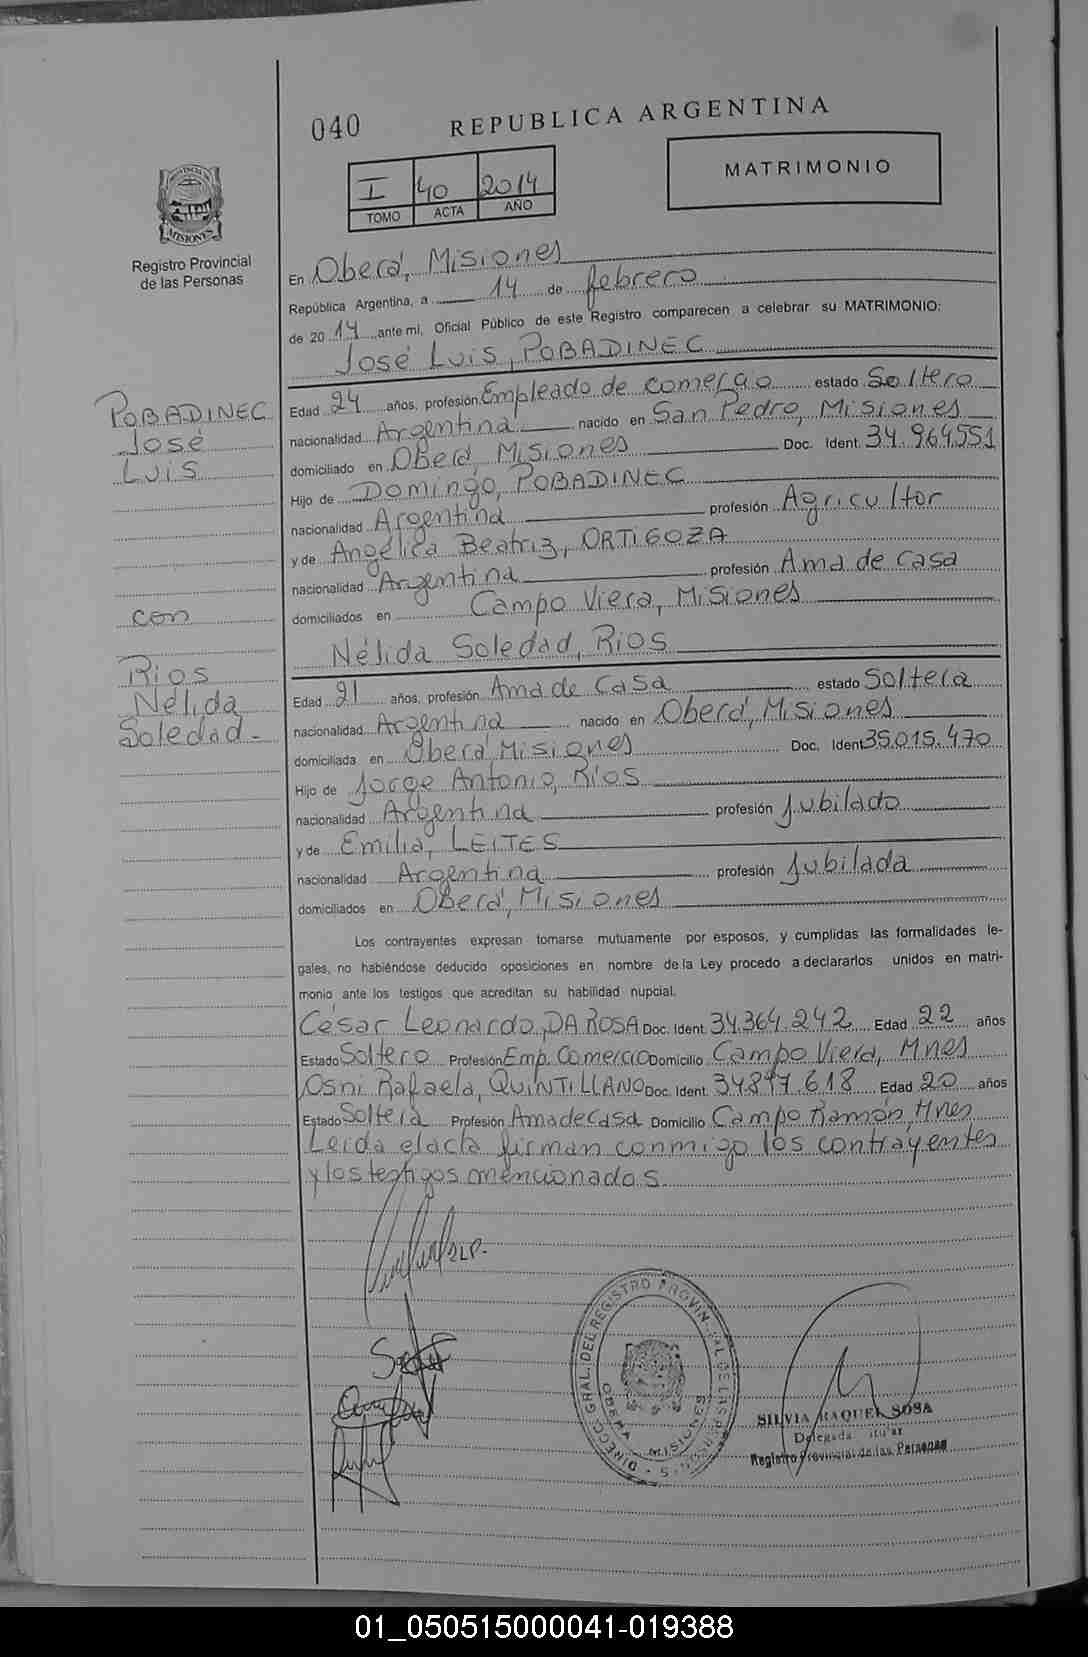 040 REPUBLICA ARGENTINA
MATRIMONIO
I 40 2014
TOMO ACTA AÑO
PROVINCIA DE
MISIONES
Registro Provincial
de las Personas
En Oberá, Misiones
República Argentina, a 14 de febrero
de 2014 ante mi, Oficial Público de este Registro comparecen a celebrar su MATRIMONIO:
José Luis, POBADINEC
POBADINEC
José
Luis
Edad 24 años, profesión Empleado de comercio estado Soltero
nacionalidad Argentina nacido en San Pedro, Misiones
domiciliado en Oberá, Misiones Doc. Ident. 34.964.551
Hijo de Domingo, POBADINEC
nacionalidad Argentina profesión Agricultor
y de Angélica Beatriz, ORTIGOZA
nacionalidad Argentina profesión Ama de casa
domiciliados en Campo Viera, Misiones
con
Nélida Soledad, Rios
Rios
Nélida
Soledad -
Edad 21 años, profesión Ama de Casa estado Soltera
nacionalidad Argentina nacido en Oberá, Misiones
domiciliada en Oberá Misiones Doc. Ident 35.015.470
Hijo de Jorge Antonio, Rios
nacionalidad Argentina profesión Jubilado
y de Emilia, LEITES
nacionalidad Argentina profesión Jubilada
domiciliados en Oberá, Misiones
Los contrayentes expresan tomarse mutuamente por esposos, y cumplidas las formalidades le-
gales, no habiéndose deducido oposiciones en nombre de la Ley procedo a declararlos unidos en matri-
monio ante los testigos que acreditan su habilidad nupcial.
César Leonardo, DA ROSA Doc. Ident. 34.364.242 Edad 22 años
Estado Soltero Profesión Emp. Comercio Domicilio Campo Viera, Mnes
Osni Rafaela, QUINTILLANO Doc. Ident. 34.897.618 Edad 20 años
Estado Soltera Profesión Ama de casa Domicilio Campo Ramón, Mnes
Leida el acta firman conmigo los contrayentes
y los testigos mencionados.
DIRECC. GRAL. DEL REGISTRO PROVINCIAL DE LAS PERSONAS
OBERA MISIONES
SILVIA RAQUEL SOSA
Delegada
Registro Provincial de las Personas
01_050515000041-019388